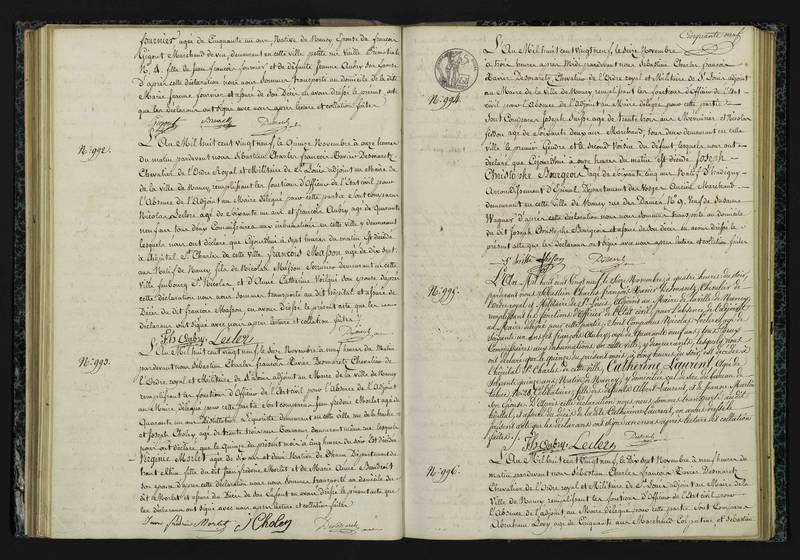 fournier agée de Cinquante un ans Native de Nancy Epouse de françois
Gigout Marchand de vin, demeurant en cette ville petite rue
N.° 4. fille de Jean françois fournier et de défunte Jeanne Aubry son Epouse
D'après cette déclaration nous nous sommes transporté au domicile de la dite
Marie Jeanne fournier et assuré de son Décès en avons dressé le présent acte
que les déclarans ont signé avec nous après lecture et collation faites
N.° 992.
L'An Mil huit cent vingt neuf, le Quinze Novembre à onze heures
du matin pardevant nous Sébastien Charles françois Xavier Desmaretz
Chevalier de l'Ordre Royal et Militaire de St Louis adjoint au Maire de
de la Ville de Nancy remplissant les fonctions d'Officier de l'Etat civil pour
l'Absence de l'Adjoint au Maire délégué pour cette partie sont comparus
Nicolas Leclerc agé de Soixante un ans et françois Aubry agé de Quarante
neuf ans tous deux Commissaires aux inhumations en cette ville y demeurant
lesquels nous ont déclaré que Cejourd'hui à sept heures du matin est décédé
à l'hôpital St Charles de cette ville françois Masson agé de dix sept
ans Natif de Nancy fils de Nicolas Masson demeurant en cette
ville faubourg St Nicolas et d'Anne Catherine son épouse d'après
cette déclaration nous nous sommes transporté au dit hôpital et assuré du
Décès du dit françois Masson, en avons dressé le présent acte que les
déclarans ont signé avec nous après lecture et collation faites
fs Aubry Leclerc
N.° 993.
L'An Mil huit cent vingt neuf, le Seize Novembre à neuf heures du Matin
pardevant nous Sébastien Charles françois Xavier Desmaretz Chevalier de
l'Ordre royal et Militaire de St Louis adjoint au Maire de la Ville de Nancy
remplissant les fonctions d'Officier de l'Etat civil pour l'Absence de l'Adjoint
au Maire délégué pour cette partie sont comparus Jean frédéric Morlet agé de
Quarante un ans demeurant en cette ville rue de la
et Joseph Choley agé de trente trois ans demeurant même rue lesquels
nous ont déclaré que le Quinze du présent mois à cinq heures du soir est décédée
Virginie Morlet agée de dix ans et demi Native de Département du
fille du dit Jean frédéric Morlet et de Marie Anne
son épouse d'après cette déclaration nous nous sommes transporté au domicile du
dit Sr Morlet et assuré du Décès de son Enfant en avons dressé le présent acte que
les déclarans ont signé avec nous après lecture et collation faites
Jean frédéric Morlet J Choley
Cinquante neuf
N.° 994.
L'An Mil huit cent Vingt neuf, le Seize Novembre
à trois heures après Midi pardevant nous Sébastien Charles françois
Xavier Desmaretz, Chevalier de l'Ordre royal et Militaire de St Louis adjoint
au Maire de la Ville de Nancy remplissant les fonctions d'Officier de l'Etat
civil pour l'Absence de l'Adjoint au Maire délégué pour cette partie
sont Comparus Joseph agé de trente trois ans et Nicolas
agé de Soixante deux ans Marchand, tous deux demeurant en cette
ville le premier Gendre et le second Voisin du défunt lesquels nous ont
déclaré que Cejourd'hui à onze heures du matin est décédé Joseph
Christophe Bourgeois agé de soixante cinq ans Natif
Arrondissement d'Epinal Département des Vosges Ancien Marchand
demeurant en cette Ville de Nancy rue des Dames N.° 9, Veuf de Suzanne
Wagner d'après cette déclaration nous nous sommes transporté au domicile
du dit Joseph Christophe Bourgeois et assuré de son décès en avons dressé le
présent acte que les déclarans ont signé avec nous après lecture et collation faites
N.° 995.
L'An Mil huit cent Vingt neuf le Seize Novembre à quatre heures du soir,
pardevant nous Sébastien Charles françois Xavier Desmaretz Chevalier de
l'Ordre royal et Militaire de St Louis, Adjoint au Maire de la ville de Nancy,
remplissant les fonctions d'Officier de l'Etat civil, pour l'absence de l'adjoint
au Maire délégué pour cette partie, Sont Comparus Nicolas Leclerc agé de
soixante un ans et françois Aubry agé de Quarante neuf ans, tous deux
Commissaires aux inhumations en cette ville, y demeurant, lesquels nous
ont déclaré que le quinze du présent mois à cinq heures du soir, est décédée à
l'hôpital St Charles de cette ville, Catherine Laurent, Agée de
Soixante quinze ans Native de Nancy, y domiciliée
N.° 28, Célibataire, fille de défunts Albert Laurent, et de Jeanne Martin
son Epouse. D'après cette déclaration nous nous sommes transporté au dit
hôpital, et assuré du décès de la dite Catherine Laurent, en avons dressé le
présent acte que les déclarans ont signé avec nous après lecture et collation
faites
fs Aubry Leclerc
N.° 996.
L'An Mil huit cent Vingt neuf, le Dix sept Novembre à neuf heures du
matin pardevant nous Sébastien Charles françois Xavier Desmaretz
Chevalier de l'Ordre royal et Militaire de St Louis adjoint au Maire de la
Ville de Nancy remplissant les fonctions d'Officier de l'Etat civil pour
l'Absence de l'adjoint au Maire délégué pour cette partie, sont Comparus
Abraham Levy agé de Cinquante ans Marchand Colporteur et Sébastien